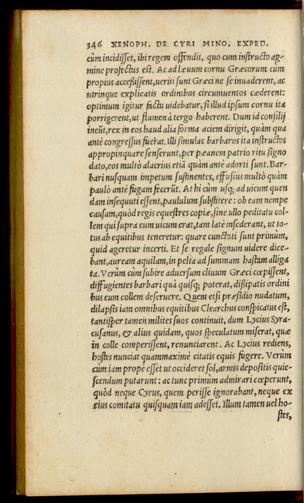 346 XENOPH. DE CYRI MINO. EXPED.
cùm incidisset, ibi regem offendit, quo cum instructo ag-
mine profectus est. Ac ad lævum cornu Græcorum cùm
propius accessissent, veriti sunt Græci ne se invaderent, ac
utrinque explicatis ordinibus circumuentos cæderent:
optimum igitur factu uidebatur, si illud ipsum cornu ita
porrigerent, ut flumen à tergo haberent. Dum id consilij
ineũt, rex in eos haud alia forma aciem dirigit, quàm qua
antè congressus fuerat. Illi simulac barbaros ita instructos
appropinquare senserunt, per pæanem patrio ritu signo
dato, eos multò alacrius etiã quàm antè adorti sunt. Bar-
bari nusquam impetum sustinentes, effusius multò quàm
paulò antè fugam fecerũt. At hi eùm usq; ad uicum quen
dam insequuti essent, paululum substitere: ob eam nempe
causam, quòd regis equestres copiæ, sine ullo peditatu col-
lem qui supra eum uicum erat, tam latè insederant, ut to-
tus ab equitibus teneretur: quare cunctati sunt primùm,
quid ageretur incerti. Et se regale signum uidere dice-
bant, auream aquilam, in pelta ad summam hastam alliga
ta. Verùm cùm subire aduersum cliuum Græci cœpissent,
diffugientes barbari quà quisq; poterat, dissipatis ordini
bus eum collem deseruere. Quem etsi præsidio nudatum,
dilapsis iam omnibus equitibus Clearchus conspicatus est,
tantisper tamen milites suos continuit, dum Lycius Syra-
cusanus, & alius quidam, quos speculatum miserat, quæ
in colle comperissent, renunciarent. Ac Lycius rediens,
hostes nunciat quammaximè citatis equis fugere. Verùm
cùm iam propè esset ut occideret sol, armis depositis quie-
scendum putarunt: ac tunc primum admirari cœperunt,
quòd neque Cyrus, quem perisse ignorabant, neque ex
eius comitatu quisquam iam adesset. Illum tamen uel ho-
stes,